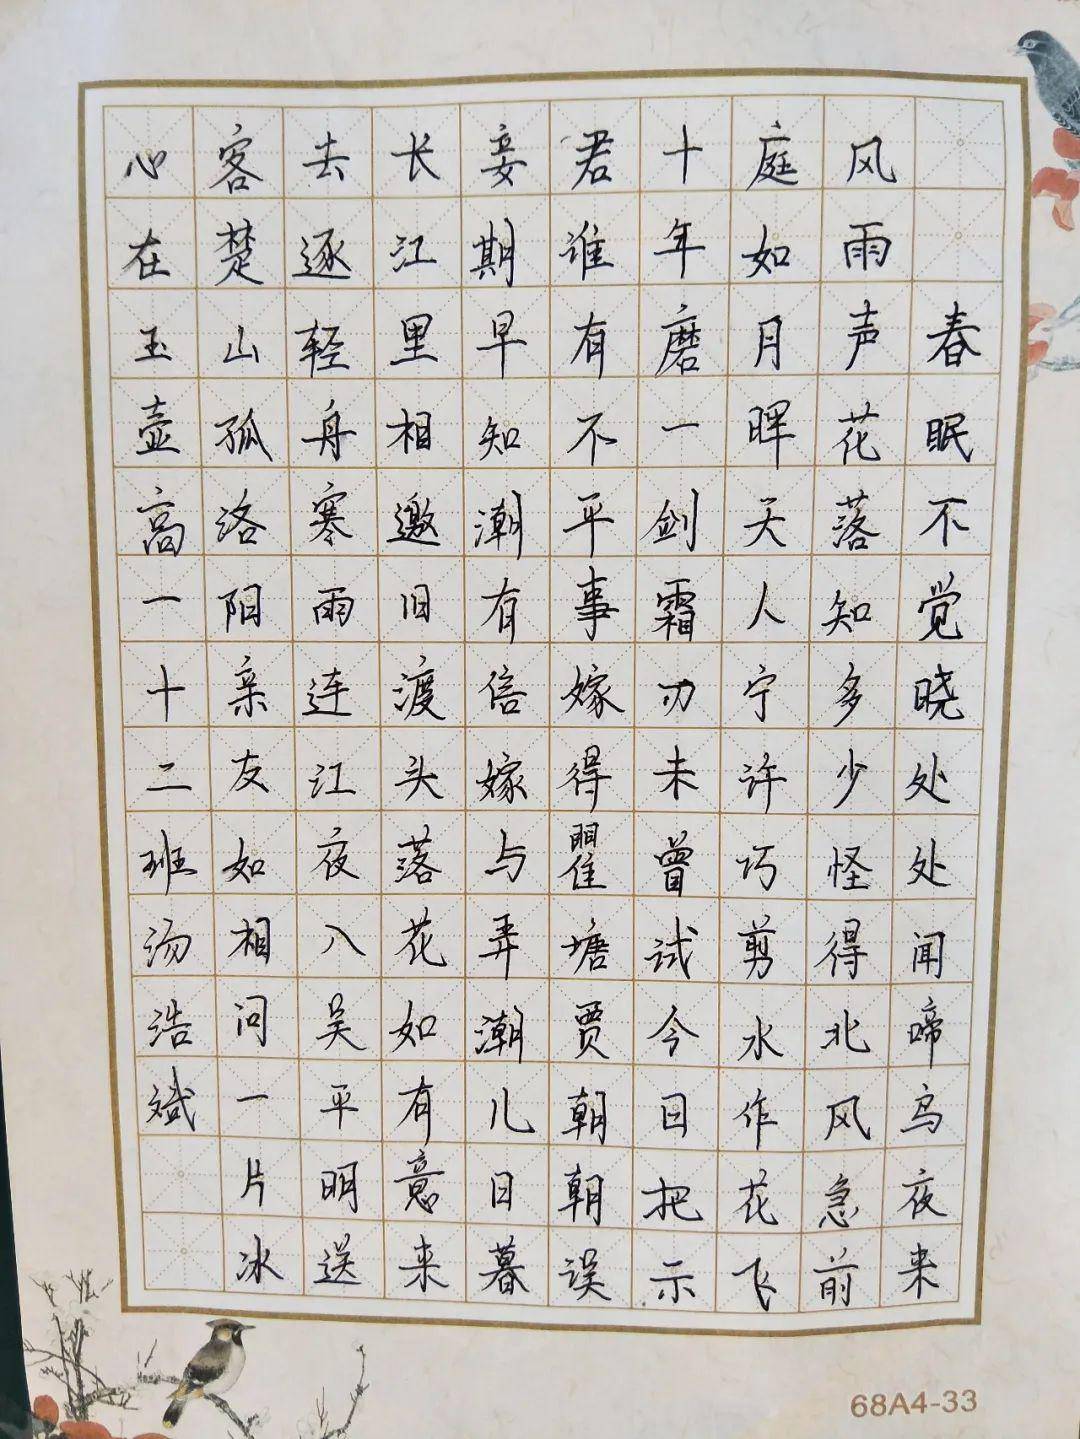 春眠不觉晓处处闻啼鸟夜来
风雨声花落知多少怪得北风急前
庭如月晖天人宁许巧剪水作花飞
十年磨一剑霜刃未曾试今日把示
君谁有不平事嫁得瞿塘贾朝朝误
妾期早知潮有信嫁与弄潮儿日暮
长江里相邀旧渡头落花如有意来
去逐轻舟寒雨连江夜入吴平明送
客楚山孤洛阳亲友如相问一片冰
心在玉壶高一十二班汤浩斌
68A4-33